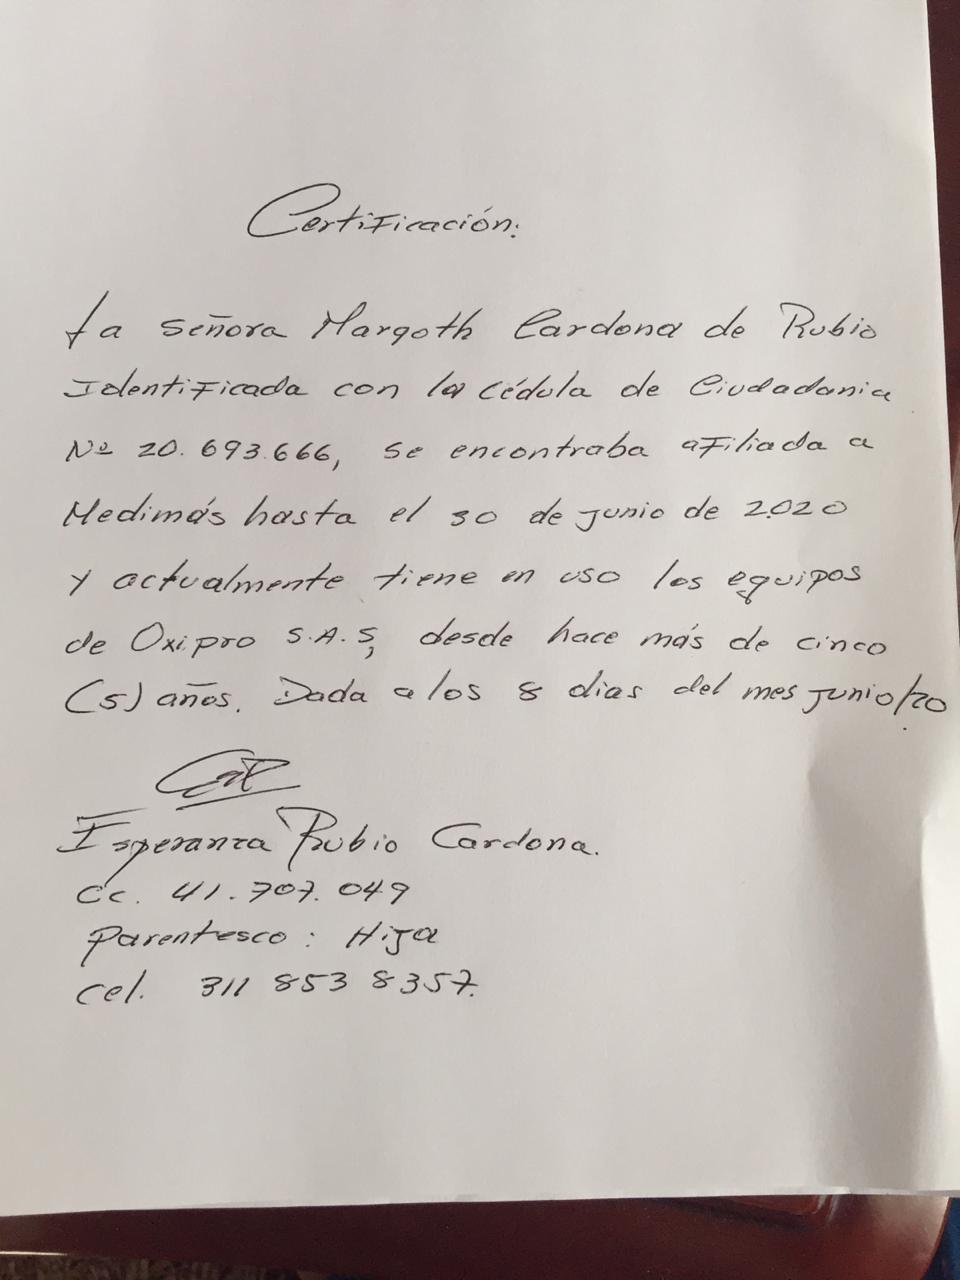 Certificación:
La señora Margoth Cardona de Rubio
Identificada con la cédula de Ciudadania
Nº 20.693.666, se encontraba afiliada a
Medimás hasta el 30 de junio de 2020
y actualmente tiene en uso los equipos
de Oxipro S.A.S, desde hace más de cinco
(5) años. Dada a los 8 dias del mes junio/20.
Esperanza Rubio Cardona.
cc. 41.707.049
Parentesco: Hija
cel. 311 853 8357.